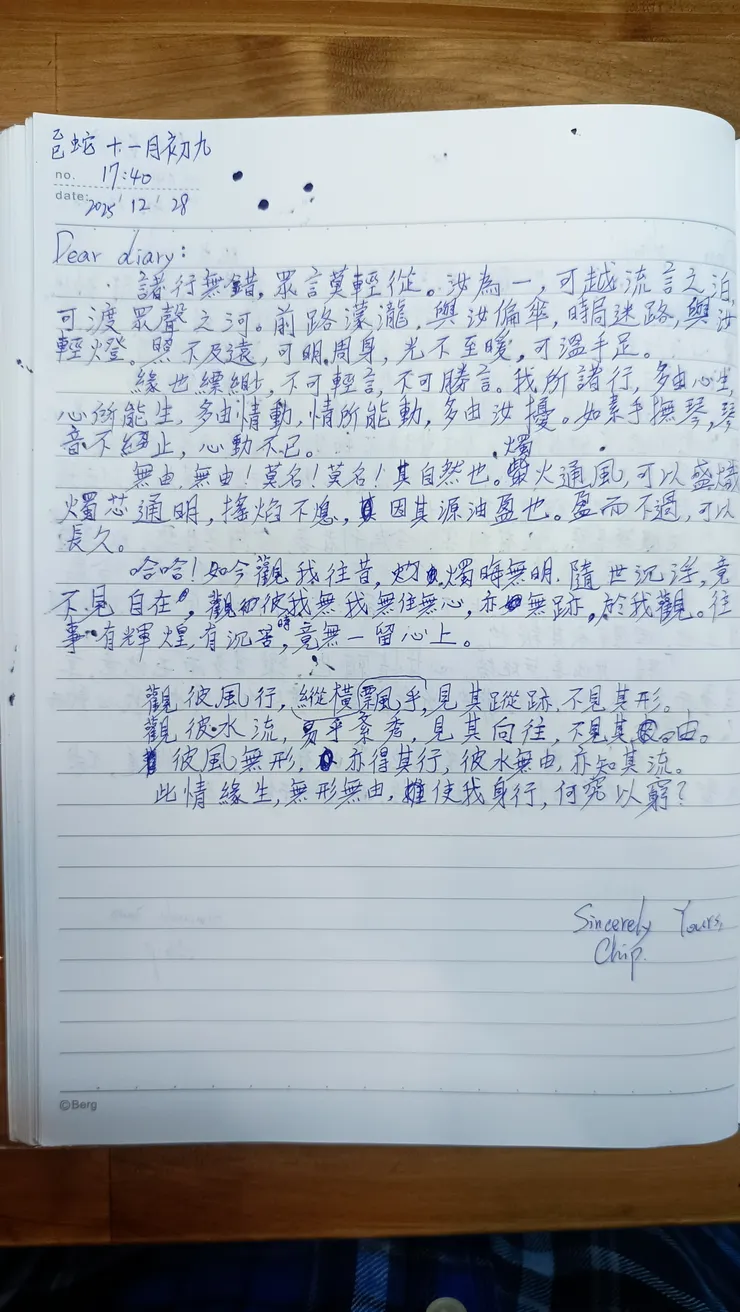 乙巳蛇 十一月初九
no. 17:40
date: 2025' 12' 28
Dear diary:
諸行無錯，眾言莫輕從。汝為一，可越流言之泊，
可渡眾聲之河。前路濛瀧，與汝偏傘，時局迷路，與汝
輕燈。照不及遠，可明周身，光不至暖，可溫手足。
緣也縹緲，不可輕言，不可勝言。我所諸行，多由心生，
心所能生，多由情動，情所能動，多由汝擾。如素手撫琴，琴
音不絕止，心動不已。
無由，無由！莫名！莫名！其自然也。燭火通風，可以盛熾
燭芯通明，搖焰不息，因其源油盈也。盈而不過，可以
長久。
哈哈！如今觀我往昔，燭晦無明，隨世沉浮，竟
不見自在，觀彼我無我無住無心，亦無跡，於我觀。往
事有輝煌，有沉苦時，竟無一留心上。
觀彼風行，縱橫飄乎，見其蹤跡，不見其形。
觀彼水流，易平紊秀，見其向往，不見其由。
彼風無形，亦得其行，彼水無由，亦知其流。
此情緣生，無形無由，使我身行，何究以窮？
Sincerely Yours,
Chip.
©Berg